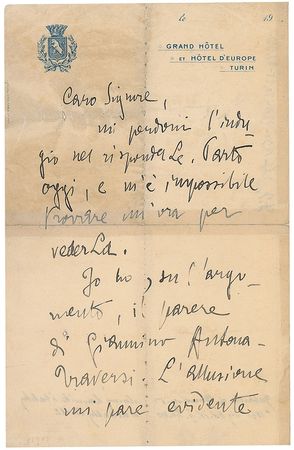 le 19
GRAND HÔTEL
ET HÔTEL D'EUROPE
TURIN
Caro Signore,
mi perdoni l'indu-
gio nel risponderLe. Parto
oggi, e m'è impossibile
trovare un'ora per
vederLa.
Io ho, su l'argo-
mento, il parere
di Giannino Antona-
Traversi. L'allusione
mi pare evidente